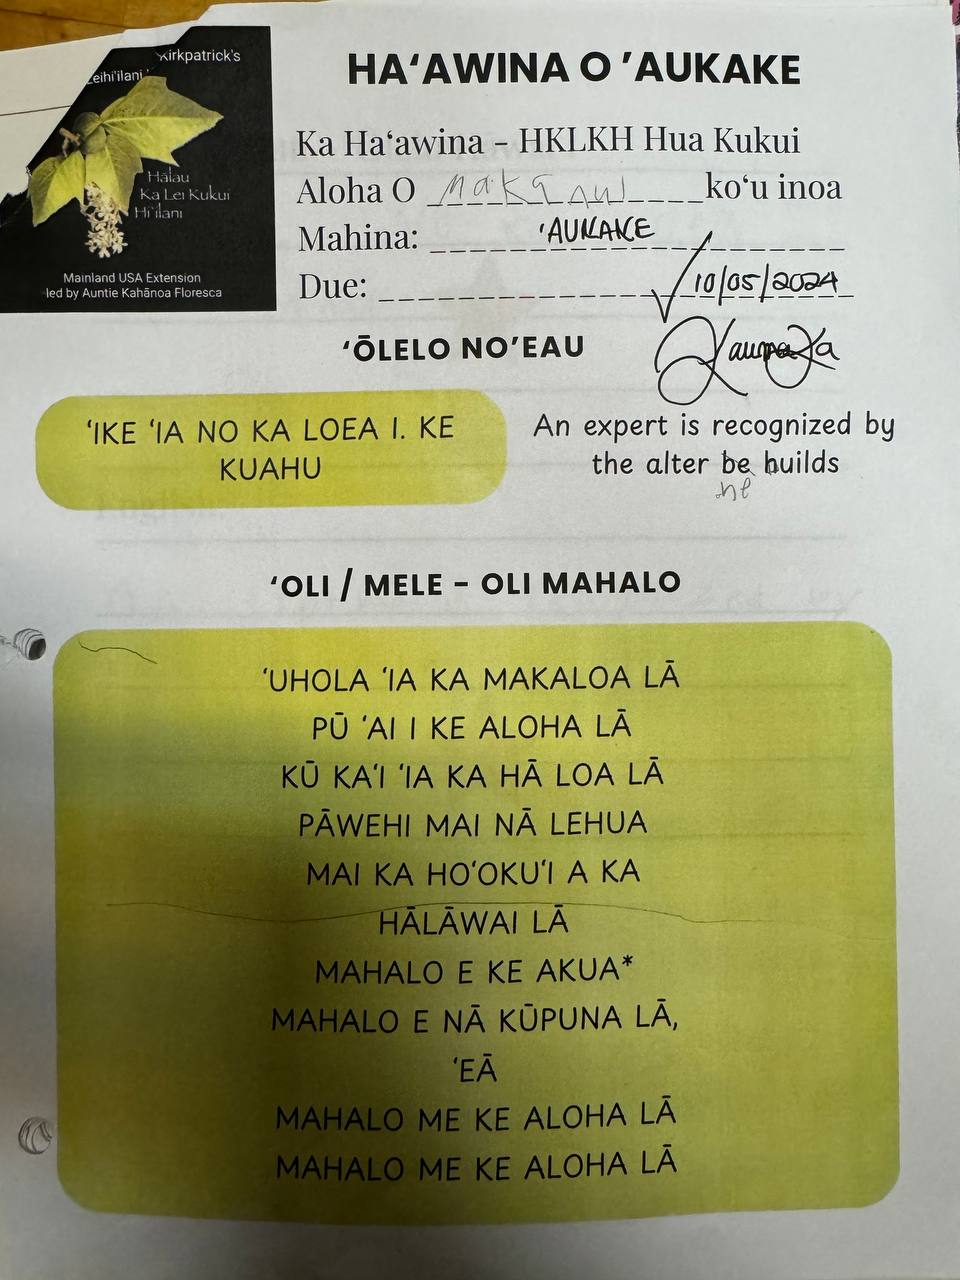 Kirkpatrick's
Leihi'ilani
Hālau
Ka Lei Kukui
Hi'ilani
Mainland USA Extension
led by Auntie Kahānoa Floresca
HAʻAWINA O ’AUKAKE
Ka Haʻawina - HKLKH Hua Kukui
Aloha O Makanui koʻu inoa
Mahina: 'AUKAKE
Due: 10/05/2024
ʻŌLELO NO’EAU
ʻIKE ʻIA NO KA LOEA I. KE
KUAHU
An expert is recognized by
the alter be builds
he
ʻOLI / MELE - OLI MAHALO
ʻUHOLA ʻIA KA MAKALOA LĀ
PŪ ʻAI I KE ALOHA LĀ
KŪ KAʻI ʻIA KA HĀ LOA LĀ
PĀWEHI MAI NĀ LEHUA
MAI KA HOʻOKUʻI A KA
HĀLĀWAI LĀ
MAHALO E KE AKUA*
MAHALO E NĀ KŪPUNA LĀ,
ʻEĀ
MAHALO ME KE ALOHA LĀ
MAHALO ME KE ALOHA LĀ